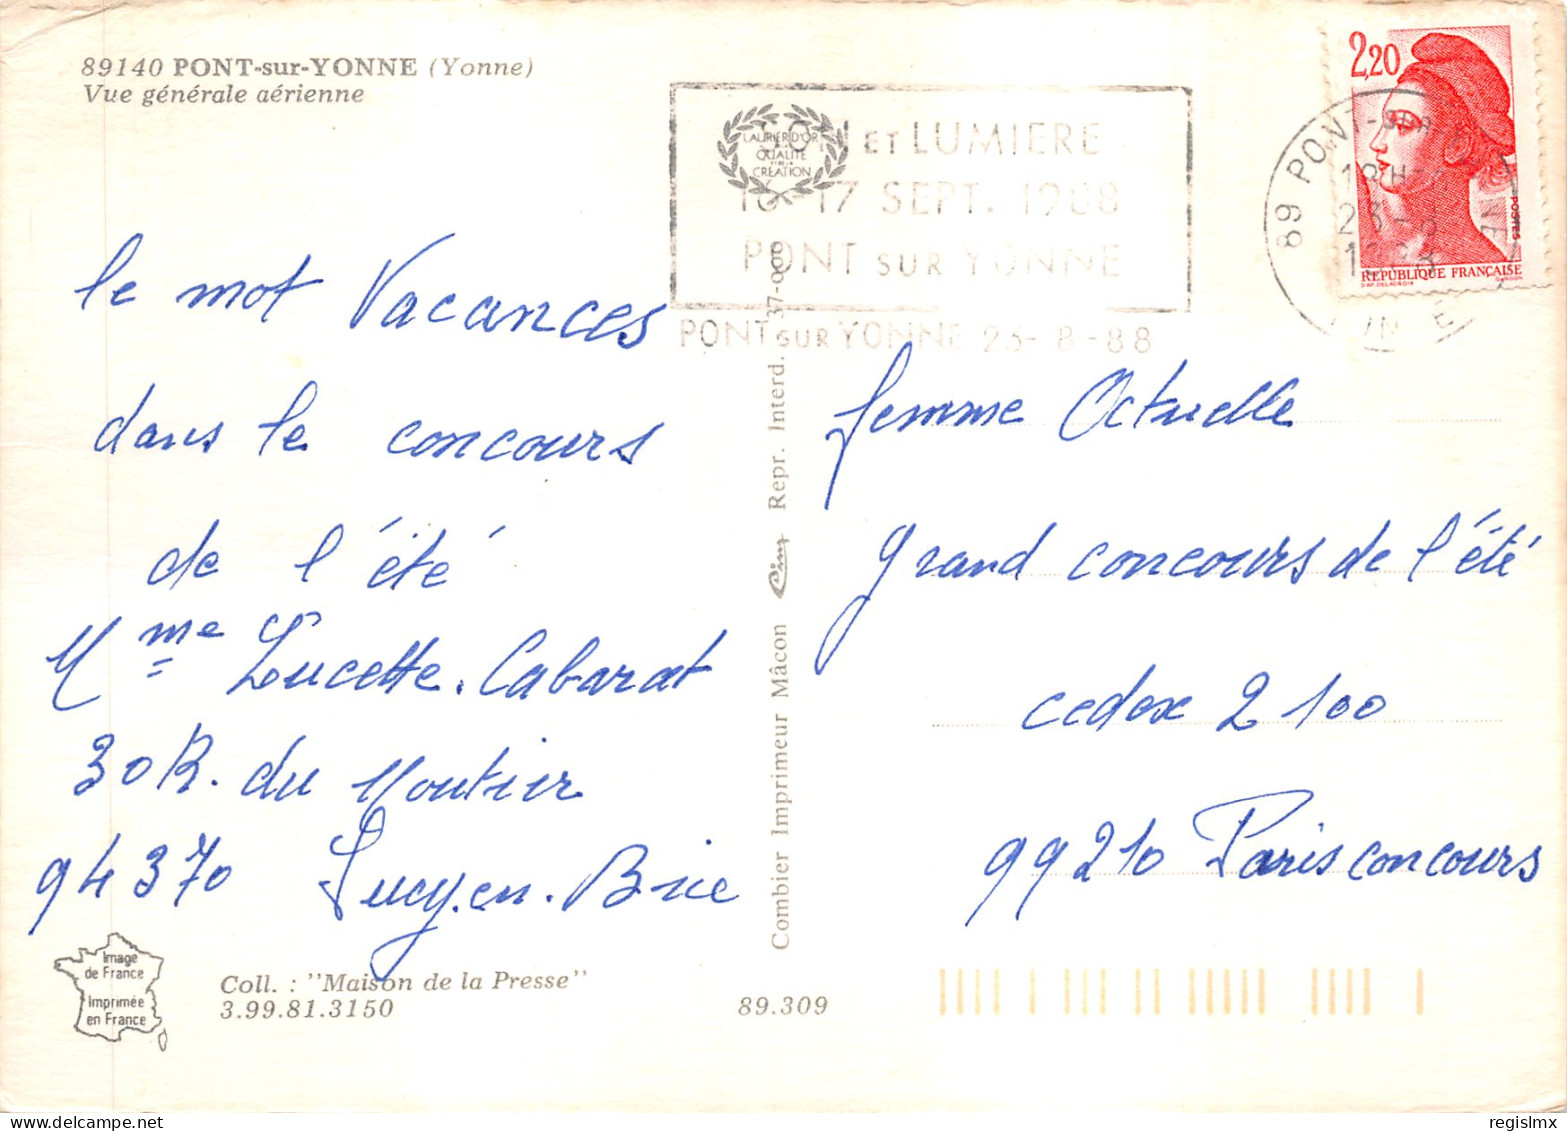 89140 PONT-sur-YONNE (Yonne)
Vue générale aérienne
LAURIER D'OR
QUALITE
CREATION
SON ET LUMIERE
16-17 SEPT. 1988
PONT SUR YONNE
PONT SUR YONNE 23-8-88
89 PONT-SUR-YONNE
18H
2,20
POSTES
REPUBLIQUE FRANÇAISE
D'AP. DELACROIX GANDON
le mot Vacances
dans le concours
de l'été
Mme Lucette. Cabarat
30 R. du Moutier
94370 Sucy.en.Brie
femme Actuelle
grand concours de l'été
cedex 2 100
99210 Paris concours
Combier Imprimeur Mâcon Cim Repr. Interd. 37-000
Image
de France
Imprimée
en France
Coll. : "Maison de la Presse"
3.99.81.3150
89.309
regislmx